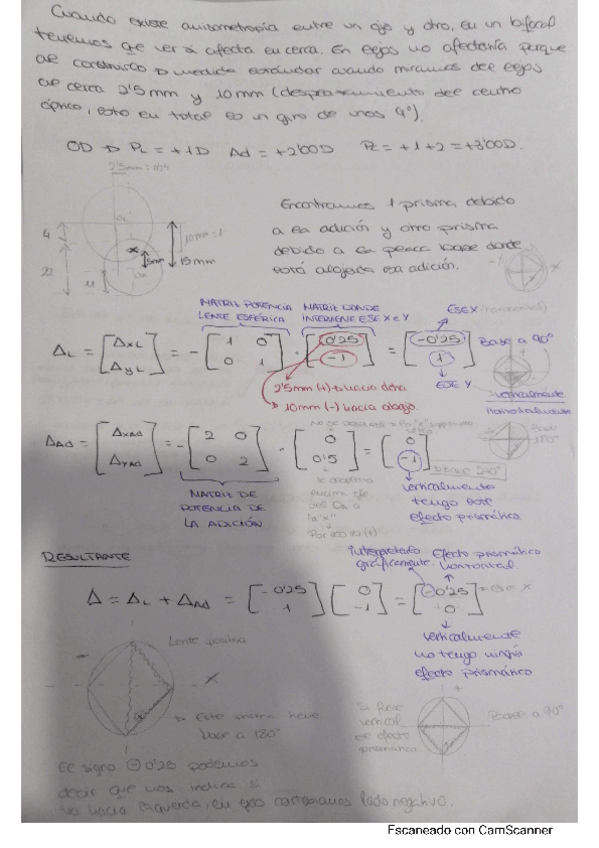 Cuando existe anisometropía entre un ojo y otro, en un bifocal
tenemos que ver si afecta en cerca. En lejos no afectaría porque
al construirlo medida estándar cuando miramos de lejos
de cerca 2'5mm y 10mm (desplazamiento del centro
óptico, esto en total es un giro de unos 9°).
OD → PL = +1D Ad = +2'00D Pc = +1+2 = +3'00D.
2'5mm = 0'25
Encontramos 1 prisma debido
a la adición y otro prisma
debido a la pieza base donde
está alojada la adición.
4
10mm = 1
5mm
15mm
22
11
MATRIZ POTENCIA LENTE ESFÉRICA
MATRIZ DONDE INTERVIENE EJE X e Y
EJE X (horizontal)
ΔL = [ΔxL ΔyL] = - [1 0 0 1] · [0'25 -1] = [-0'25 1]
Base a 90°
EJE Y
2'5mm (+) hacia dcha
10mm (-) hacia abajo.
verticalmente
Horizontalmente
Base 180°
ΔAd = [ΔxAd ΔyAd] = - [2 0 0 2] · [0 0'5] = [0 -1]
base 270°
MATRIZ DE
POTENCIA DE
LA ADICIÓN
Por eso es (+)
verticalmente
tengo este
efecto prismático.
RESULTANTE
interpretado gráficamente.
Efecto prismático horizontal
Δ = ΔL + ΔAd = [-0'25 1] [0 -1] = [-0'25 0]
verticalmente
no tengo ningún
efecto prismático
Lente positiva
X
Este prisma tiene
base a 180°
Si fuese
vertical
el efecto
prismático
Base a 90°
El signo ⊖ 0'25 podemos
decir que nos indica si
va hacia izquierda, en este caso tenemos lado negativo.
Escaneado con CamScanner